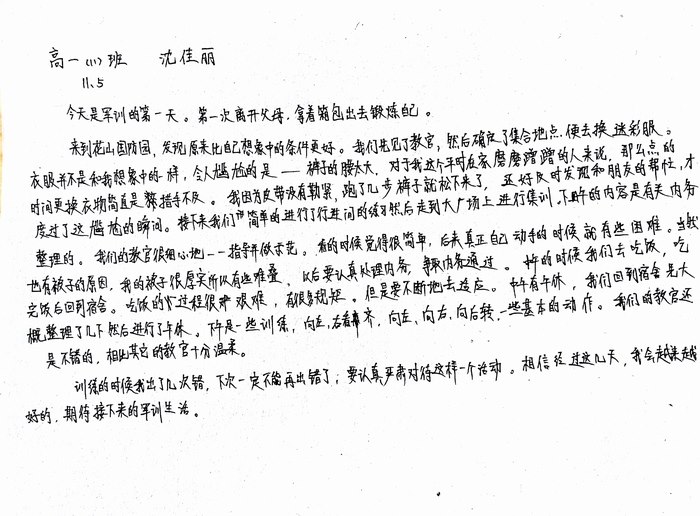 高一（1）班 沈佳丽
11.5
今天是军训的第一天。第一次离开父母，拿着箱包出去锻炼自己。
来到花山国防园，发现原来比自己想象中的条件更好。我们先见了教官，然后确定了集合地点，便去换迷彩服。
衣服并不是和我想象中的一样，令人尴尬的是——裤子的腰太大，对于我这个平时在家磨磨蹭蹭的人来说，那么点的
时间更换衣物简直是措手不及。我因为皮带没有勒紧，跑了几步裤子就松下来了，还好及时发现和朋友的帮忙，才
度过了这尴尬的瞬间。接下来我们简单的进行了行进间的练习然后走到大广场上进行集训，下的内容是有关内务
整理的。我们的教官很细心地一一指导并做示范。看的时候觉得很简单，后来真正自己动手的时候就有些困难。当然
也有被子的原因，我的被子很厚实所以有些难叠，以后要认真处理内务，争取内务通过。中午的时候我们去吃饭，吃
完饭后回到宿舍。吃饭的过程很艰难，有很多规矩。但是要不断地去适应。中午有午休，我们回到宿舍是大
概整理了几下然后进行了午休。下午是一些训练，向左、右看齐，向左、向右、向后转，一些基本的动作。我们的教官还
是不错的，相比其它的教官十分温柔。
训练的时候我出了几次错，下次一定不能再出错了；要认真严肃对待这样一个活动。相信经过这几天，我会越来越
好的，期待接下来的军训生活。